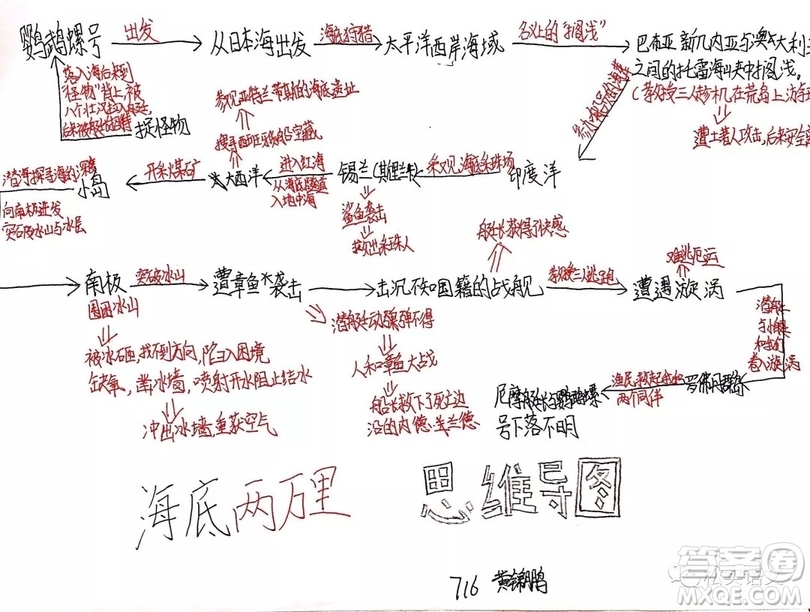 鹦鹉螺号
出发
从日本海出发
海底狩猎
太平洋西岸海域
名义上的"搁浅"
巴布亚新几内亚与澳大利
之间的托雷海峡中搁浅。
(教授三人趁机在荒岛上
遭土著人攻击,后来安全
落入海后来到
"怪物"背上,被
捉怪物
参观亚特兰蒂斯的海底遗址
印度洋
采观海底采珠场
锡兰(斯里兰卡)
鲨鱼袭击
救出采珠人
进入红海
从海底隧道
入地中海
大西洋
开采煤矿
小岛
向南极进发
突破冰山与冰层
南极
困困冰山
被冰砸,找不到方向,陷入困境
缺氧,凿冰墙,喷射开水阻止结冰
冲出冰墙,重获空气
突破冰山
遭章鱼袭击
潜艇动弹不得
人和章鱼大战
船长救下了死亡边
沿的内德·兰德
击沉不知国籍的战舰
船长获得了快感
教授三人逃跑
遭遇旋涡
难逃厄运
潜艇
卷入旋涡
渔民救起
两个同伴
尼摩船长与鹦鹉螺
号下落不明
海底两万里
思维导图
716 黄锦鹏
答案圈